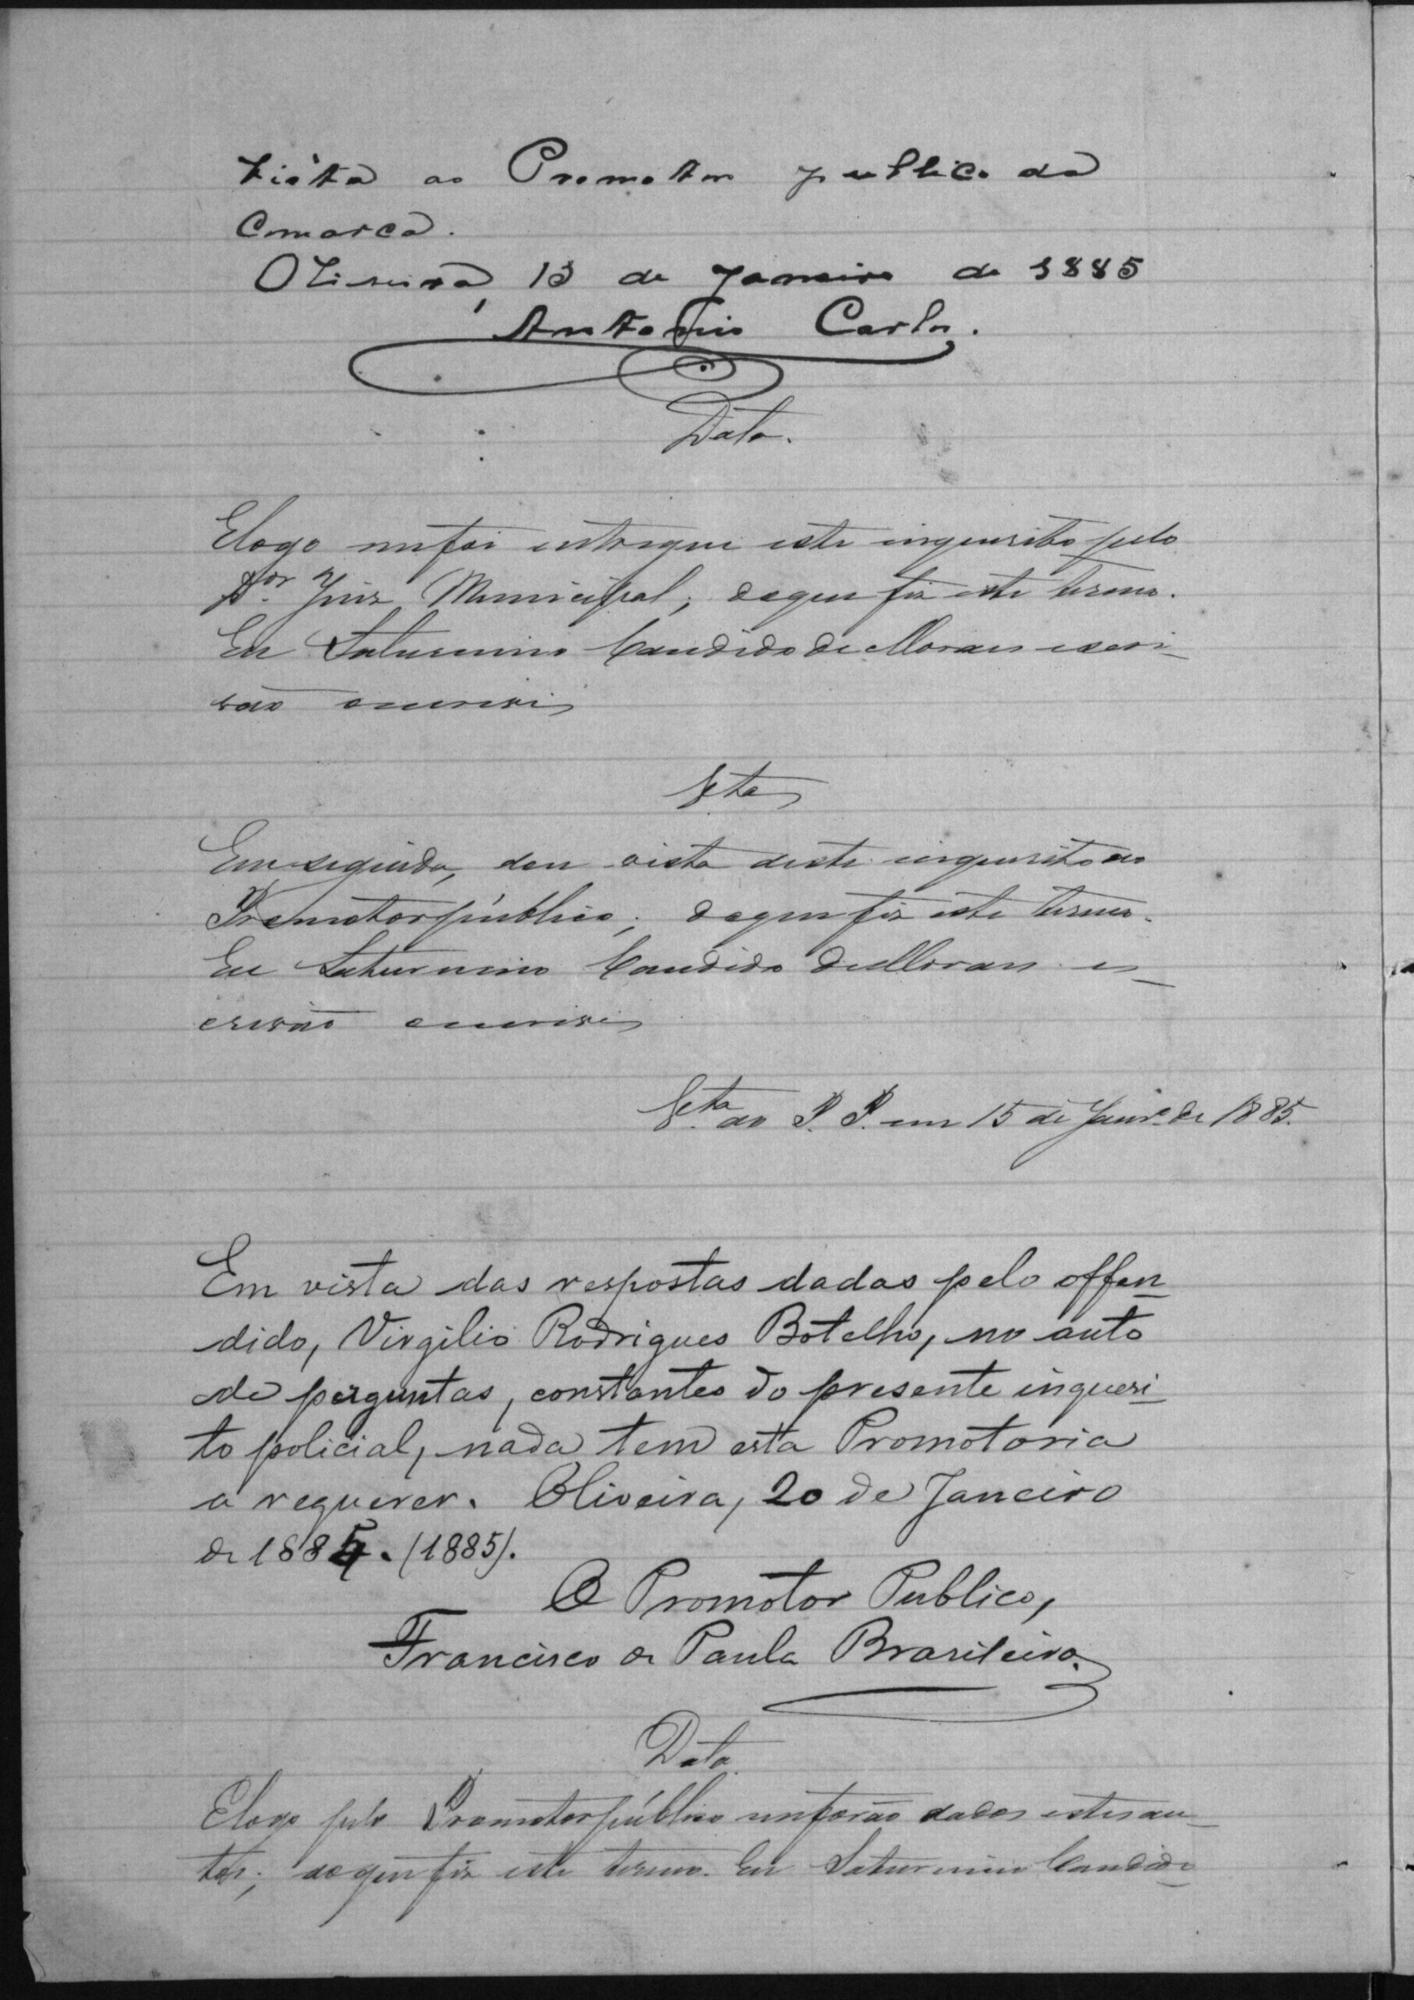 Vista ao Promotor publico da
Comarca.
Oliveira, 13 de Janeiro de 1885
Antonio Carlos.
Data.
E logo me foi entregue este inquerito pelo
Dor. Juiz Municipal; do que fiz este termo.
Eu Saturnino Candido de Moraes escri-
vão escrevi
Vta
Em seguida, dou vista deste inquerito ao
Promotor público; do que fiz este termo.
Eu Saturnino Candido de Moraes es-
crivão escrevi
Vta ao P. P. em 15 de Janro de 1885.
Em vista das respostas dadas pelo offen-
dido, Virgilio Rodrigues Botelho, no auto
de perguntas, constantes do presente inqueri-
to policial, nada tem esta Promotoria
a requerer. Oliveira, 20 de Janeiro
de 1885. (1885).
O Promotor Publico,
Francisco de Paula Brasileiro.
Data
E logo pelo Promotor público me forão dados estes au-
tos; do que fiz este termo. Eu Saturnino Candido